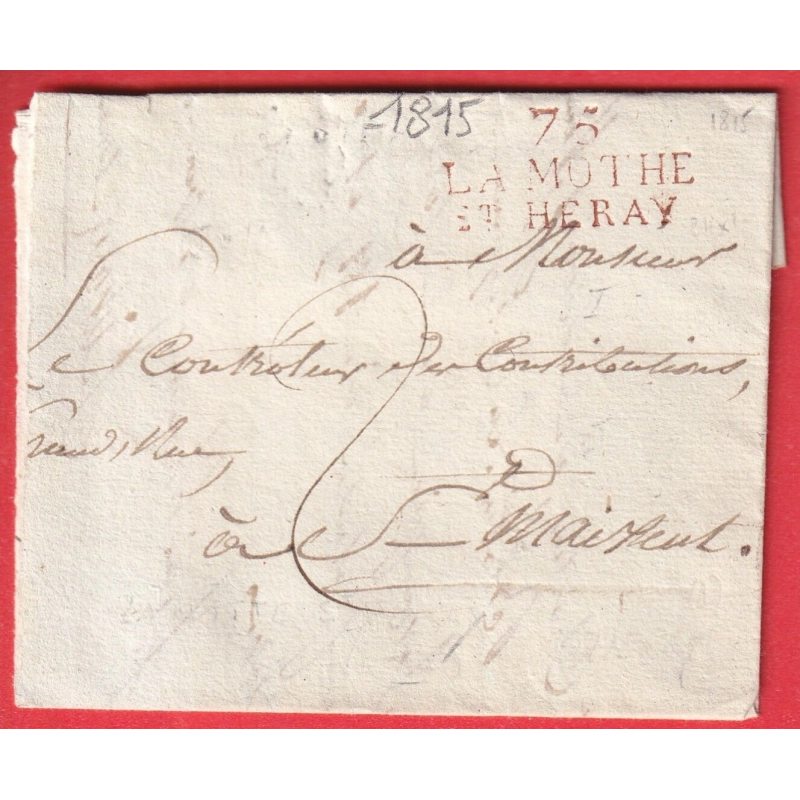 1815
75
1815
LA MOTHE
ST HERAY
à Monsieur
I
Le Controleur des Contributions,
Grand, Rue,
2
à St Maixent.